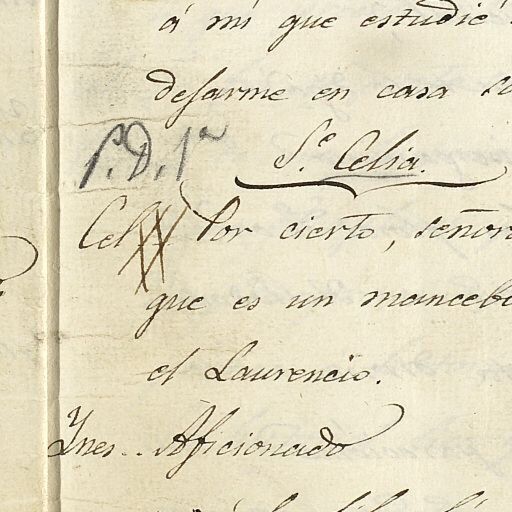 á mi que estudié
dejarme en casa
S.e Celia.
P.D.1a
Cel Por cierto, señor
que es un mancebo
el Laurencio.
Ynes.. Aficionado